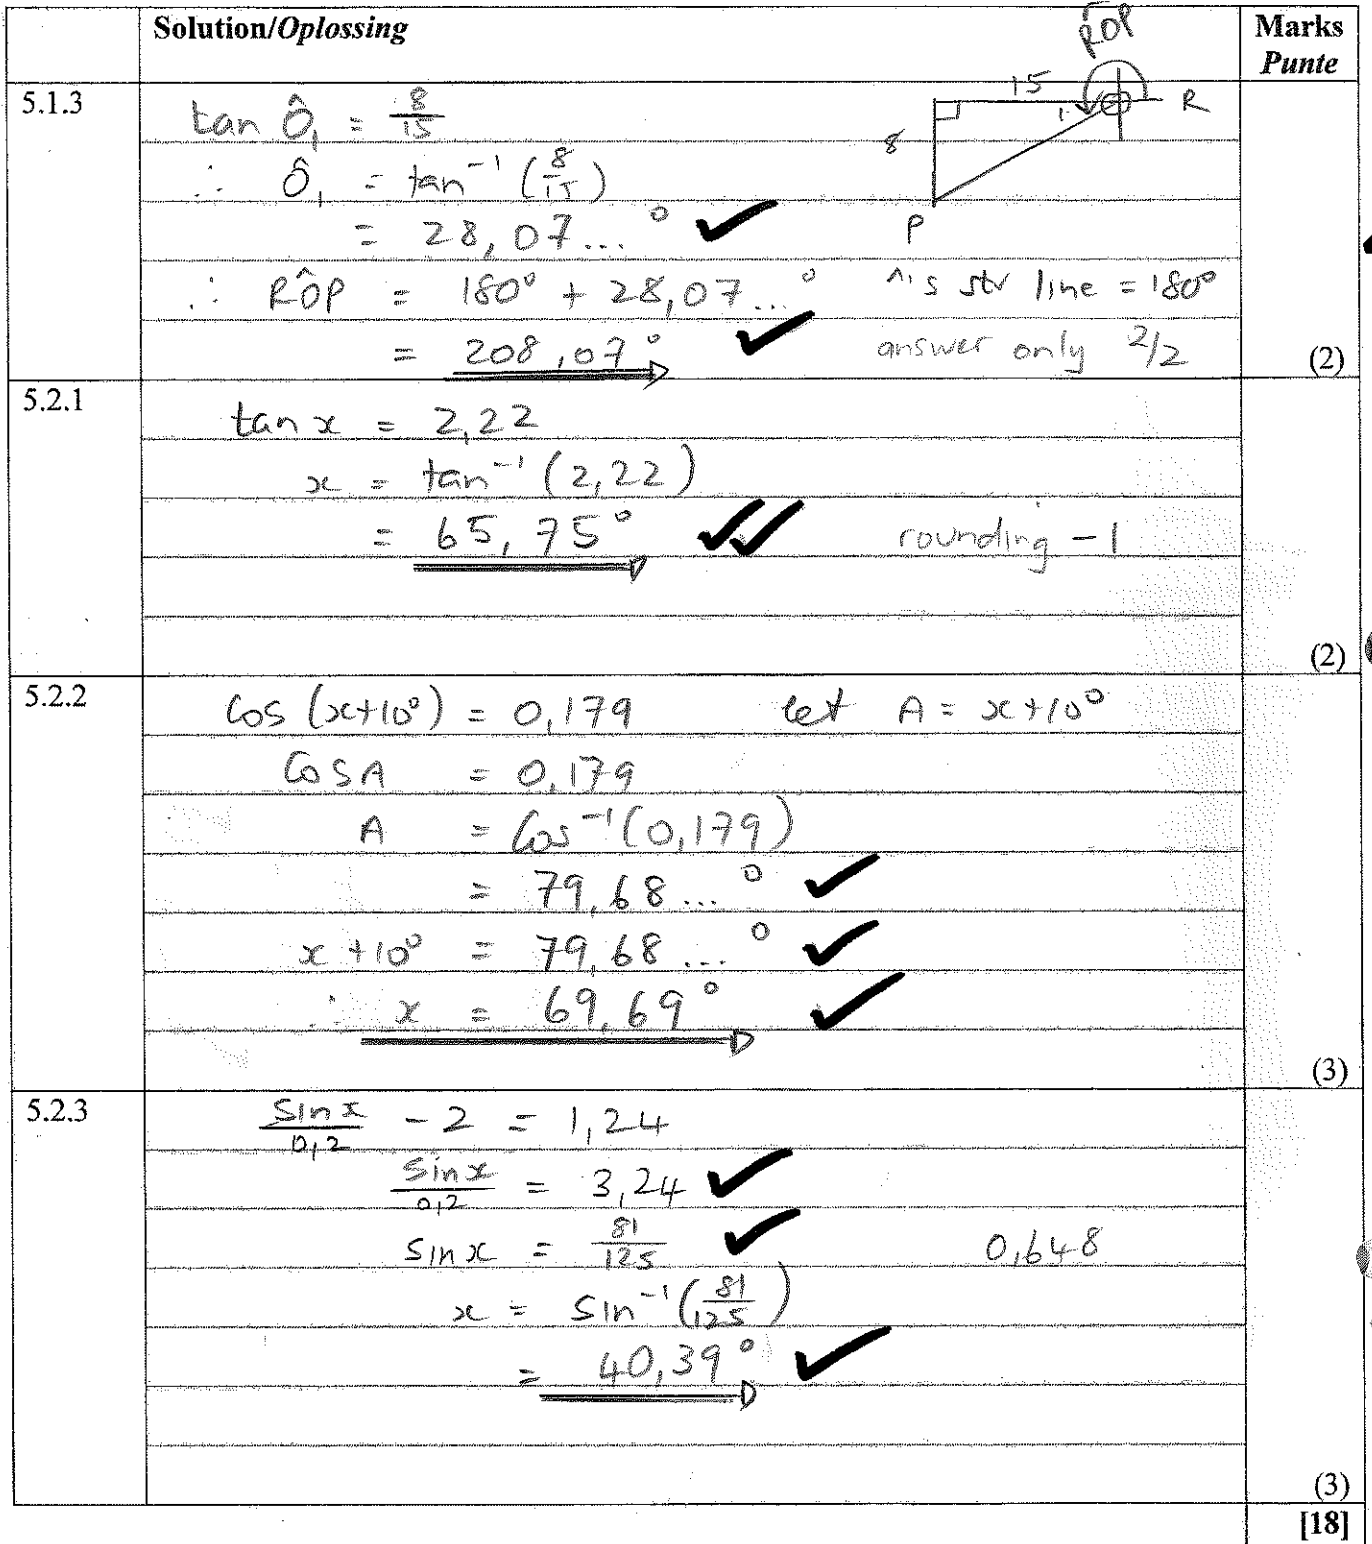 Solution/Oplossing
Marks
Punte
RÔP
5.1.3
tan Ô₁ = 8/15
15
R
1
8
P
∴ Ô₁ = tan⁻¹ (8/15)
= 28,07...°
∴ RÔP = 180° + 28,07...° ^'s str line = 180°
= 208,07° answer only 2/2
(2)
5.2.1
tan x = 2,22
x = tan⁻¹ (2,22)
= 65,75° rounding - 1
(2)
5.2.2
Cos (x+10°) = 0,179 let A = x+10°
Cos A = 0,179
A = Cos⁻¹(0,179)
= 79,68...°
x + 10° = 79,68...°
∴ x = 69,69°
(3)
5.2.3
sin x/0,2 - 2 = 1,24
sin x/0,2 = 3,24
sin x = 81/125 0,648
x = sin⁻¹(81/125)
= 40,39°
(3)
[18]